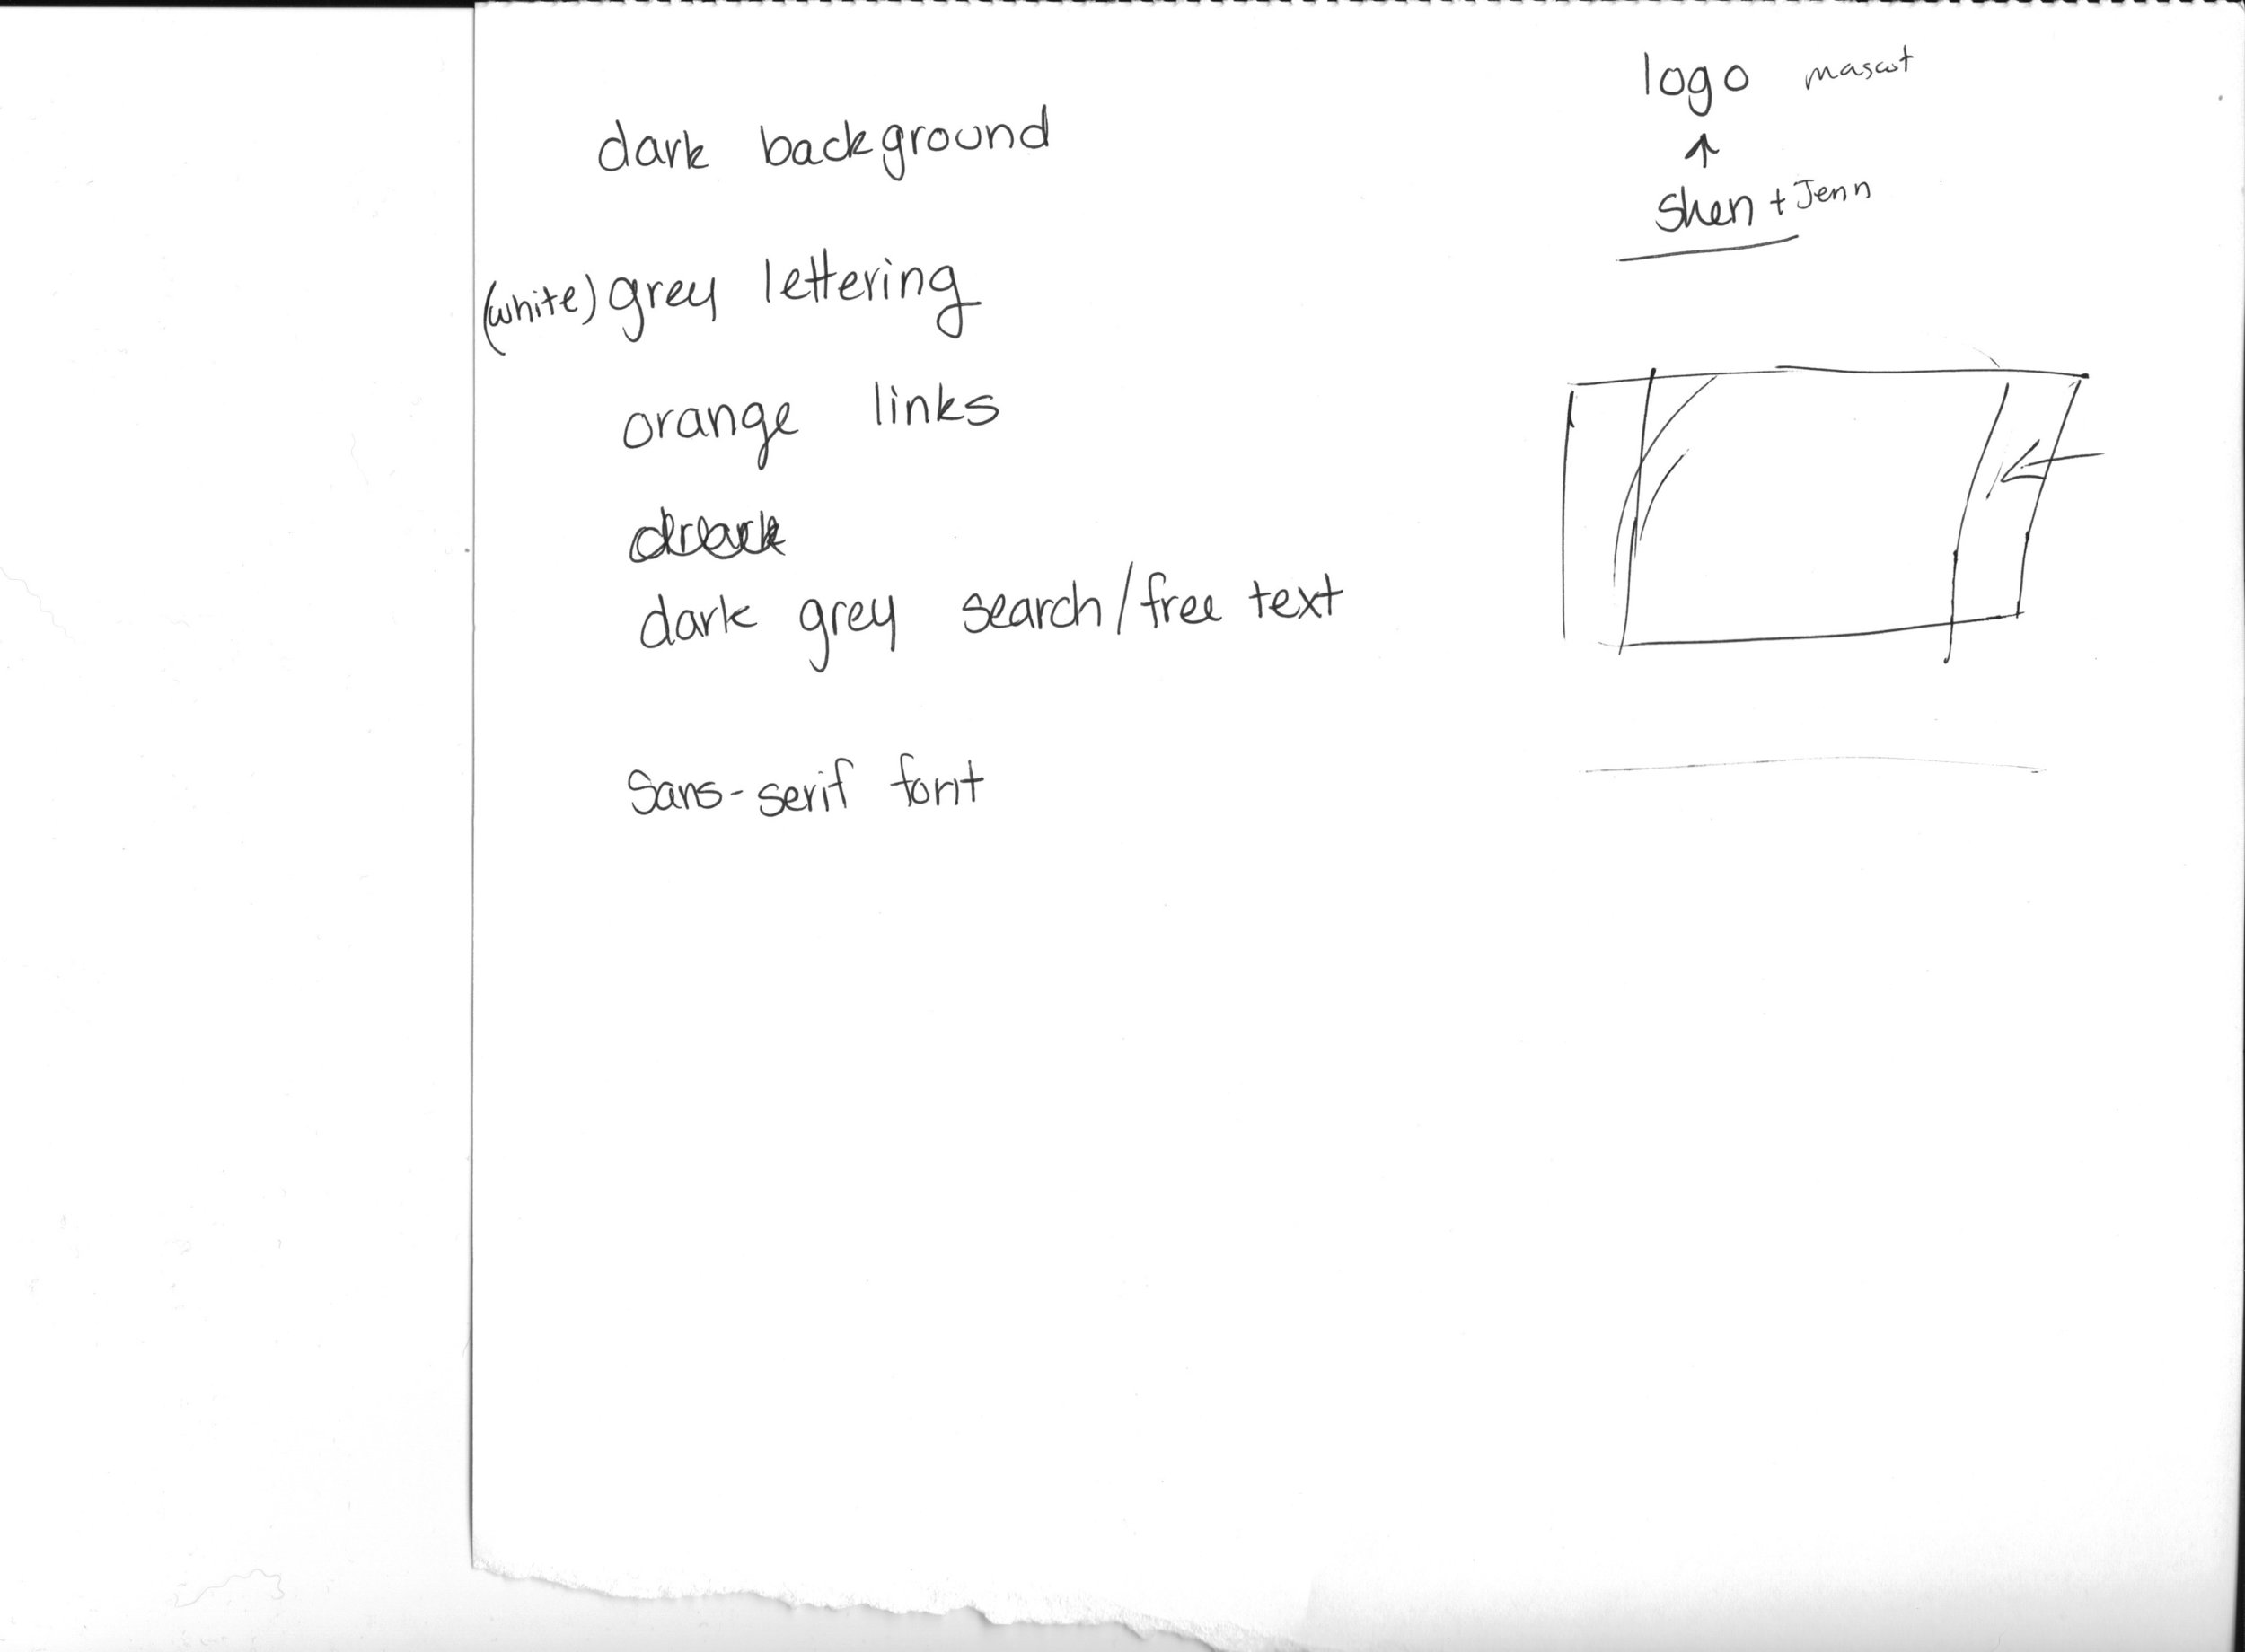 dark background
(white) grey lettering
orange links
dark grey search/free text
Sans-serif font
logo mascot
Shen + Jenn